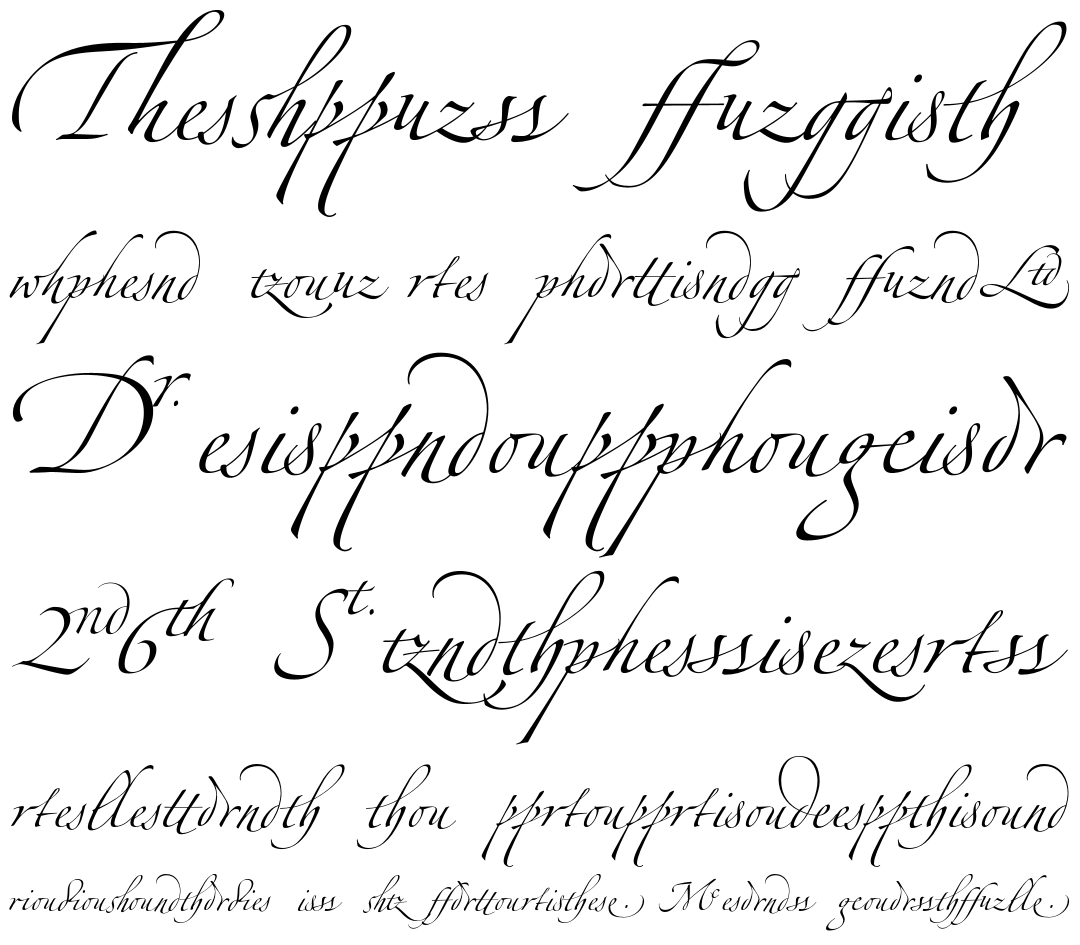 Thesshppuzss ffuzggisth
whphesnd tzouuz rtes phdrttisndgg ffuznd Ltd
Dr. esisppndouppphougeisdr
2nd 6th St. tzndthphesssisezesrtss
rtesllesttdrndth thou pprtoupprtisoudeesppthisound
rioudioushoundthdrdies isss shtz ffdrttourtisthese. Mc esdrndss geoudrssthffuzlle.